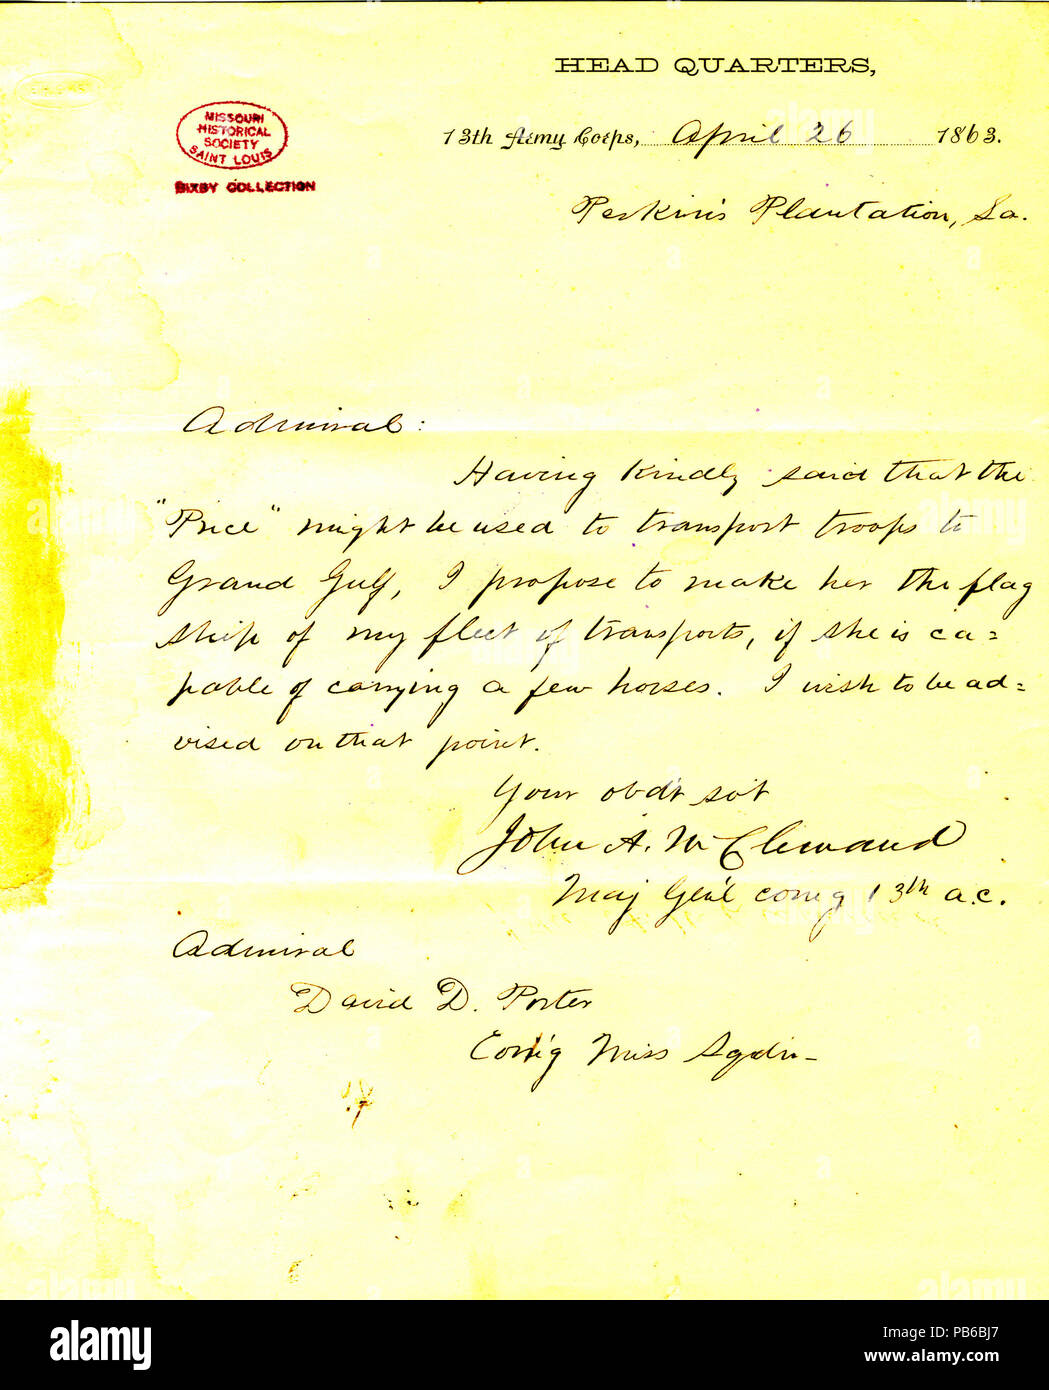 HEAD QUARTERS,
MISSOURI
HISTORICAL
SOCIETY
SAINT LOUIS
BIXBY COLLECTION
13th Army Corps, April 26 1863.
Perkin's Plantation, La.
Admiral:
Having kindly said that the
"Price" might be used to transport troops to
Grand Gulf, I propose to make her the flag
ship of my fleet of transports, if she is ca=
pable of carrying a few horses. I wish to be ad=
vised on that point.
Your obdt svt
John A. McClernand
Maj Genl comg 13th a.c.
Admiral
David D. Porter
Com'g Miss Sqdn-
alamy
Image ID: PB6BJ7
www.alamy.com